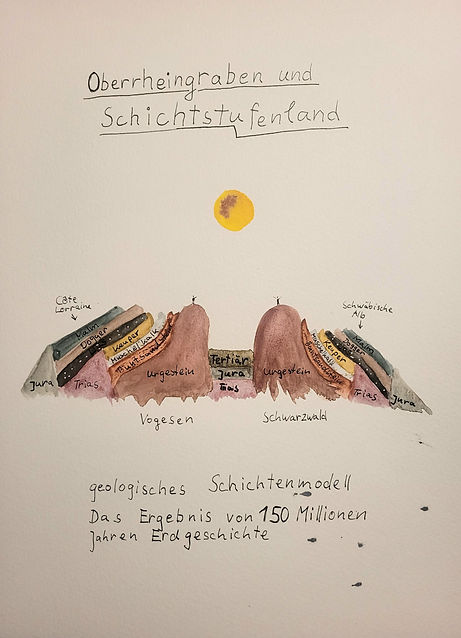 Oberrheingraben und
Schichtstufenland
Côte
Lorraine
Schwäbische
Alb
Malm
Dogger
Keuper
Muschelkalk
Buntsandstein
Jura
Trias
Urgestein
Tertiär
Jura
Trias
Urgestein
Malm
Dogger
Keuper
Muschelkalk
Buntsandstein
Trias
Jura
Vogesen
Schwarzwald
geologisches Schichtenmodell
Das Ergebnis von 150 Millionen
Jahren Erdgeschichte